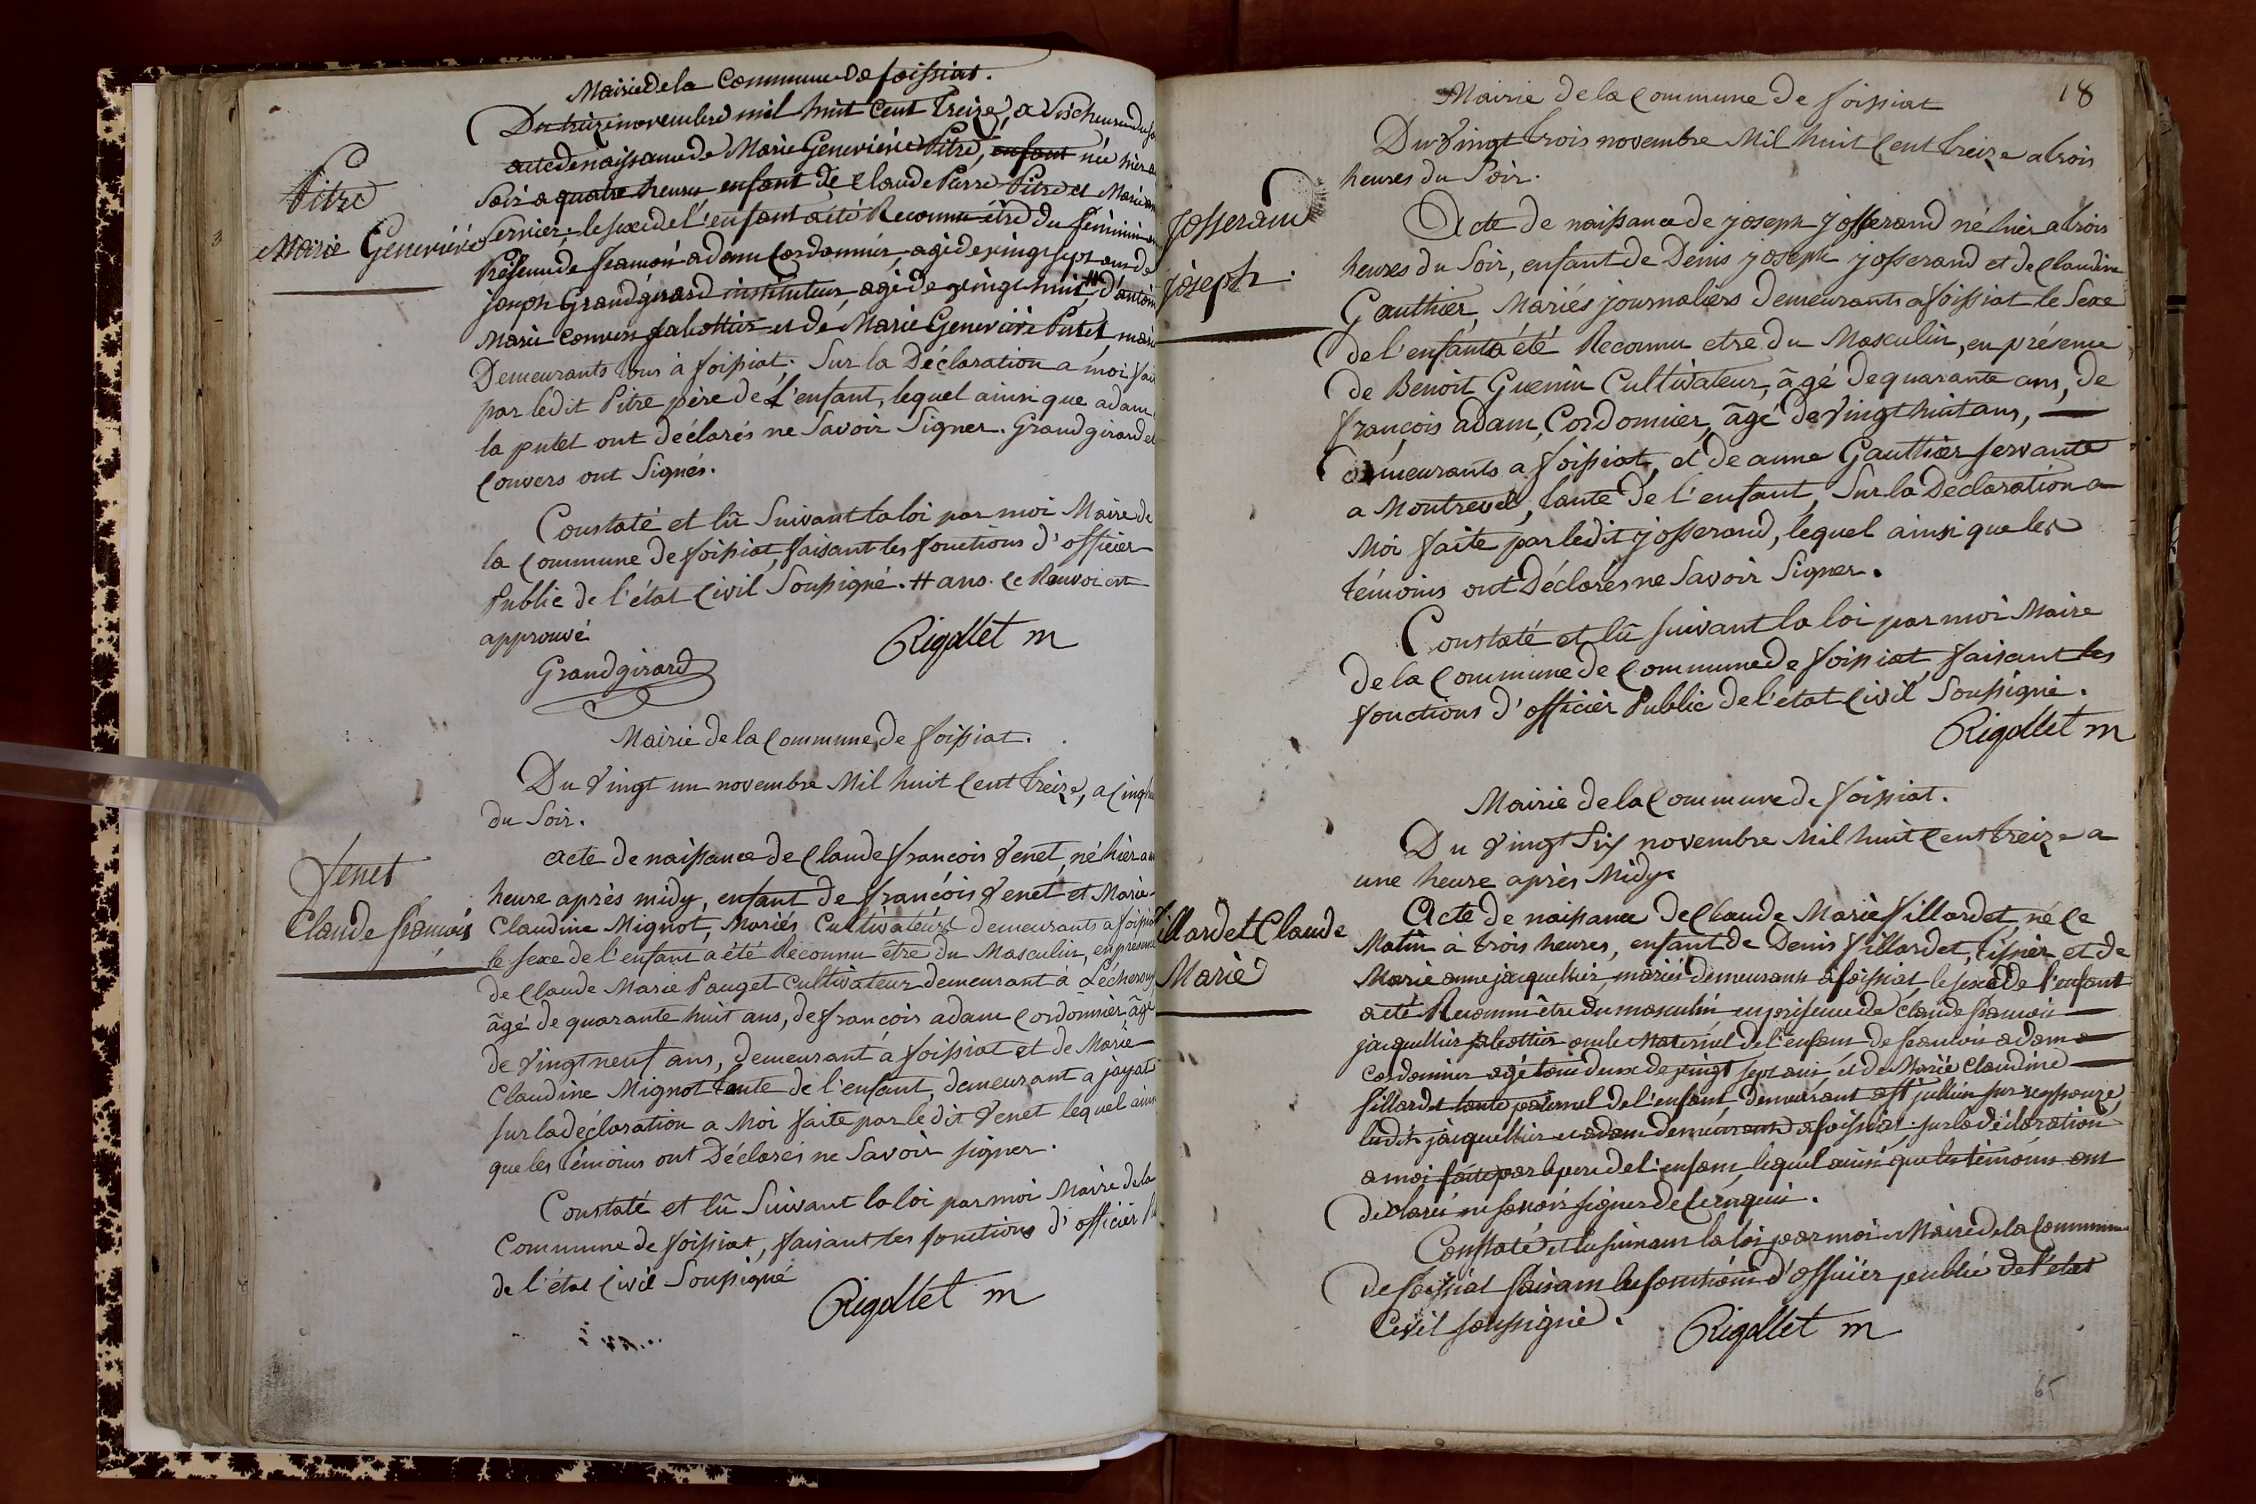 Mairie de la Commune de foissiat.
Du treize novembre mil huit cent treize, a dix heures du
acte de naissance de Marie Geneviéve Pitre, enfant née hier a
Soir a quatre heures enfant de Claude Pierre Pitre et Marie
Pitre
Marie Geneviéve
Fervier, le sexe de l'enfant a été Reconnu être du féminin
Présence de françois adam Cordonnier, agé de vingt sept ans de
joseph Grandgirard instituteur, agé de vingt huit # d'antoine
Marie Convers sabottier et de Marie Geneviéve Putet, mariés
Demeurants tous à foissiat. Sur la Déclaration a moi fai
par ledit Pitre père de l'enfant, lequel ainsi que adam
la putet ont déclarés ne Savoir Signer. Grandgirard et
Convers ont Signés.
Constaté et lû Suivant la loi par moi Maire de
la Commune de foissiat, faisant les fonctions d'officier
Public de l'état Civil Soussigné. # ans. Ce Renvoi est
approuvé
Rigollet m
Grandgirard
Mairie de la Commune de foissiat.
Du Vingt un novembre Mil huit Cent treize, a Cinq
du Soir.
Venet
Claude françois
acte de naissance de Claude françois Venet, né hier a
heure après midy, enfant de françois Venet et Marie
Claudine Mignot, Mariés Cultivateurs demeurants a foissiat
le sexe de l'enfant a été Reconnu être du Masculin, en présence
de Claude Marie Pauget Cultivateur demeurant à
âgé de quarante huit ans, de françois adam Cordonnier âgé
de Vingt neuf ans, demeurant à foissiat et de Marie
Claudine Mignot tante de l'enfant, demeurant a jayat
sur la déclaration a Moi faite par ledit Venet lequel ainsi
que les témoins ont Déclarés ne Savoir signer.
Constaté et lû Suivant la loi par moi Maire de la
Commune de foissiat, faisant les fonctions d'officier
de l'état Civil Soussigné
Rigollet m
18
Mairie de la Commune de foissiat
Du Vingt trois novembre Mil huit Cent treize a trois
heures du Soir.
Josserand
joseph.
Acte de naissance de joseph josserand né hier a trois
heures du Soir, enfant de Denis joseph josserand et de Claudine
Gauthier, Mariés journaliers demeurants a foissiat le Sexe
de l'enfant a été Reconnu etre du Masculin, en présence
de Benoit Guenin Cultivateur, âgé de quarante ans, de
françois adam, Cordonnier, âgé de Vingt huit ans,
demeurants a foissiat, et de anne Gauthier servante
a Montrevel, tante de l'enfant, Sur la Déclaration a
Moi faite par ledit josserand, lequel ainsi que les
témoins ont Déclarés ne Savoir Signer.
Constaté et lû suivant la loi par moi Maire
de la Commune de Commune de foissiat, faisant les
fonctions d'officier Public de l'état Civil Soussigné.
Rigollet m
Mairie de la Commune de foissiat.
Du Vingt Six novembre Mil huit Cent treize a
une heure après Midy
Villardet Claude
Marie
Acte de naissance de Claude Marie Villardet, né Ce
Matin à trois heures, enfant de Denis Villardet, Tissier, et de
Marie anne jacquellier, mariés demeurans a foissiat, le sexe de l'enfant
a été Reconnu être du masculin en présence de Claude françois
jacquellier sabottier oncle Maternel de l'enfant de françois adam
Cordonnier agé tous deux de vingt sept ans, et de Marie Claudine
fillardet tante paternel de l'enfant, demeurant a st jullien sur ressouze
ledit jacquellier et adam demeurants a foissiat. sur la déclaration
a moi faite par le pere de l'enfant, lequel ainsi que les témoins ont
déclarés ne savoir signer de Ce requis.
Constaté et lu suivant la loi par moi Maire de la Commune
de foissiat faisant les fonctions d'officier public de l'état
Civil soussigné.
Rigollet m
65